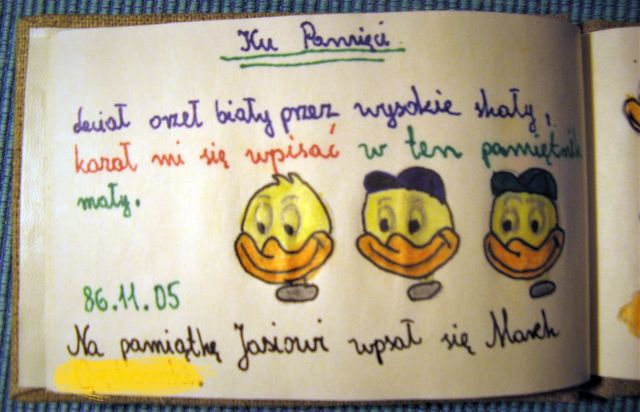 Ku Pamięci
leciał orzeł biały przez wysokie skały,
kazał mi się wpisać w ten pamiętnik
mały.
86.11.05
Na pamiątkę Jasiowi wpsał się Marek